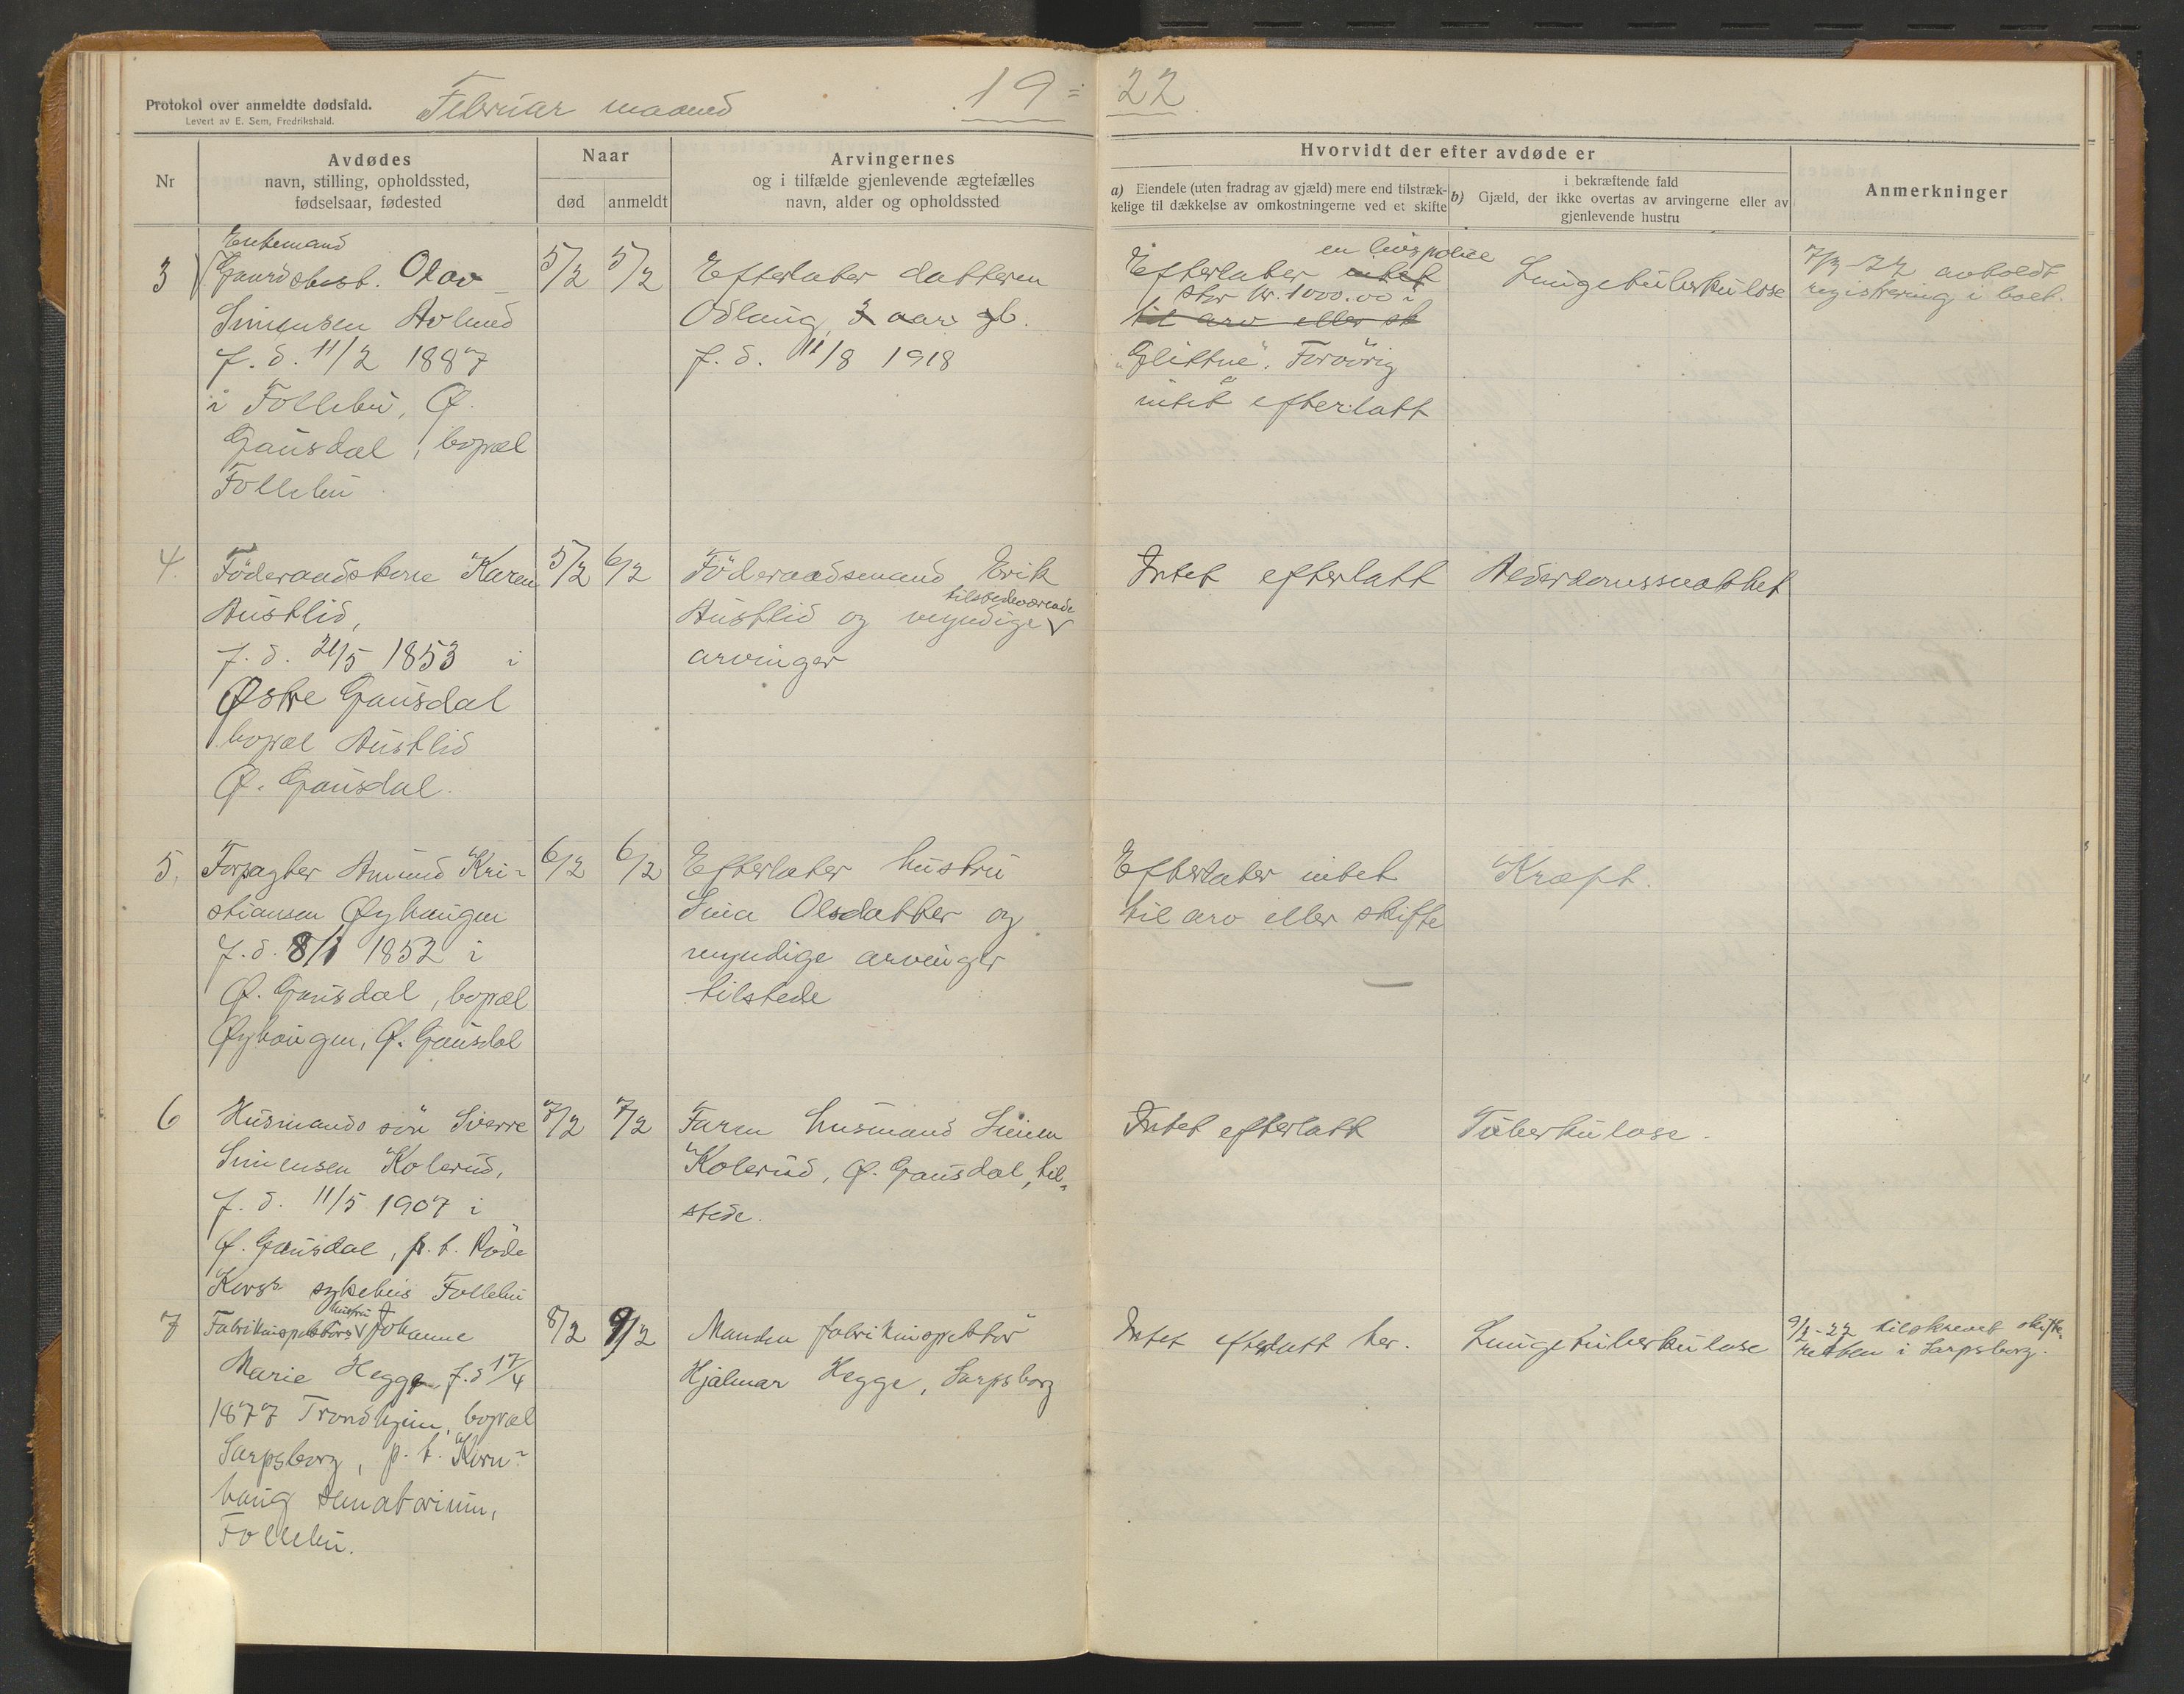 Protokol over anmeldte dødsfald.
Levert av E. Sem, Fredrikshald.
Februar maaned 19 = 22
Nr
Avdødes
navn, stilling, opholdssted,
fødselsaar, fødested
Naar
død
anmeldt
Arvingernes
og i tilfælde gjenlevende ægtefælles
navn, alder og opholdssted
Hvorvidt der efter avdøde er
a) Eiendele (uten fradrag av gjæld) mere end tilstræk-
kelige til dækkelse av omkostningerne ved et skifte
i bekræftende fald
b) Gjæld, der ikke overtas av arvingerne eller av
gjenlevende hustru
Anmerkninger
3
Enkemand
Gaardsbest. Olav
Simensen Avlund
f. d. 11/2 1887
i Follebu, Ø.
Gausdal, bopæl
Follebu
5/2
5/2
Efterlater datteren
Odlaug, 3 aar gl.
f. d. 11/8 1918
en livspolice
Efterlater intet
stor kr. 1000.00 i
til arv eller sk
"Glittne". Forøvrig
intet efterlatt
Lungetuberkulose
7/3-22 avholdt
registrering i boet.
4.
Föderaadskone Karen
Austlid,
f. d. 21/5 1853 i
Østre Gausdal
bopæl Austlid
Ø. Gausdal.
5/2
6/2
Föderaadsmand Erik
tilstedeværende
Austlid og myndige
arvinger
Intet efterlatt
Alderdomssvakhet
5.
Forpagter Amund Kri-
stiansen Øyhaugen
f. d. 8/1 1852 i
Ø. Gausdal, bopæl
Øyhaugen, Ø. Gausdal
6/2
6/2
Efterlater hustru
Sina Olsdatter og
myndige arvinger
tilstede
Efterlater intet
til arv eller skifte
Kræft.
6
Husmands søn Sverre
Simensen Kolerud,
f. d. 11/5 1907 i
Ø. Gausdal, p. t. Røde
Kors's sykehus Follebu
7/2
7/2
Faren husmand Simen
Kolerud, Ø. Gausdal, til-
stede.
Intet efterlatt
Tuberkulose.
7
hustru
Fabrikinspektørs Johanne
Marie Hegge, f. d 17/4
1877 Trondhjem, bopæl
Sarpsborg, p. t. Korn-
haug sanatorium,
Follebu.
8/2
9/2
Manden fabrikinspektør
Hjalmar Hegge, Sarpsborg
Intet efterlatt her.
Lungetuberkulose
9/2-22 tilskrevet skifte-
retten i Sarpsborg.